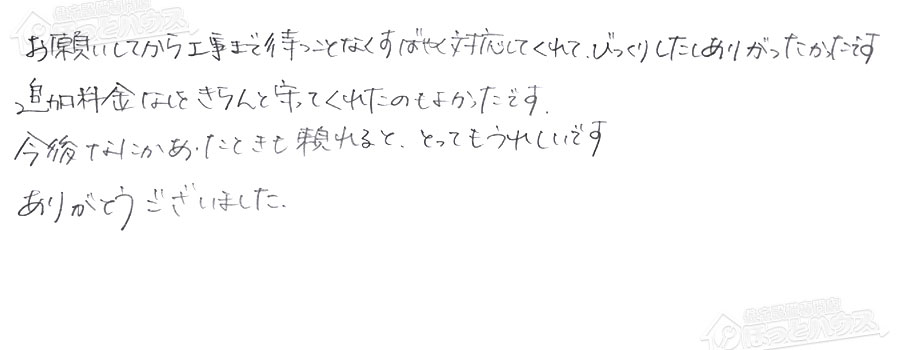 お願いしてから工事まで待つことなくすばやく対応してくれて、びっくりしたしありがったかったです
追加料金なしをきちんと守ってくれたのもよかったです.
今後なにかあったときも頼れると、とってもうれしいです
ありがとうございました.
住宅設備専門店
ほっとハウス
住宅設備専門店
ほっとハウス